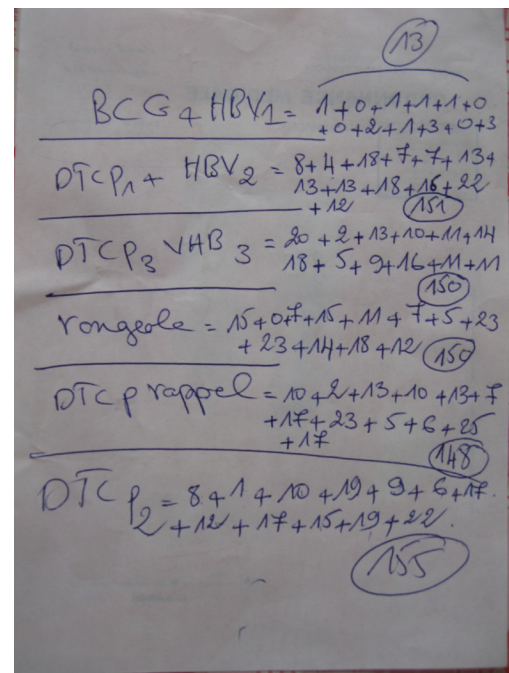 13
BCG + HBV1 = 1+0+1+1+1+0
+0+2+1+3+0+3
DTCP1 + HBV2 = 8+4+18+7+7+13+
13+13+18+16+22
+12 151
DTCP3 VHB 3 = 20+2+13+10+11+14
18+5+9+16+11+11
150
rongeole = 15+0+7+15+11+7+5+23
+23+14+18+12 150
DTCP rappel = 10+2+13+10+13+7
+17+23+5+6+25
+17 148
DTCP2 = 8+1+10+19+9+6+17.
+12+17+15+19+22.
155